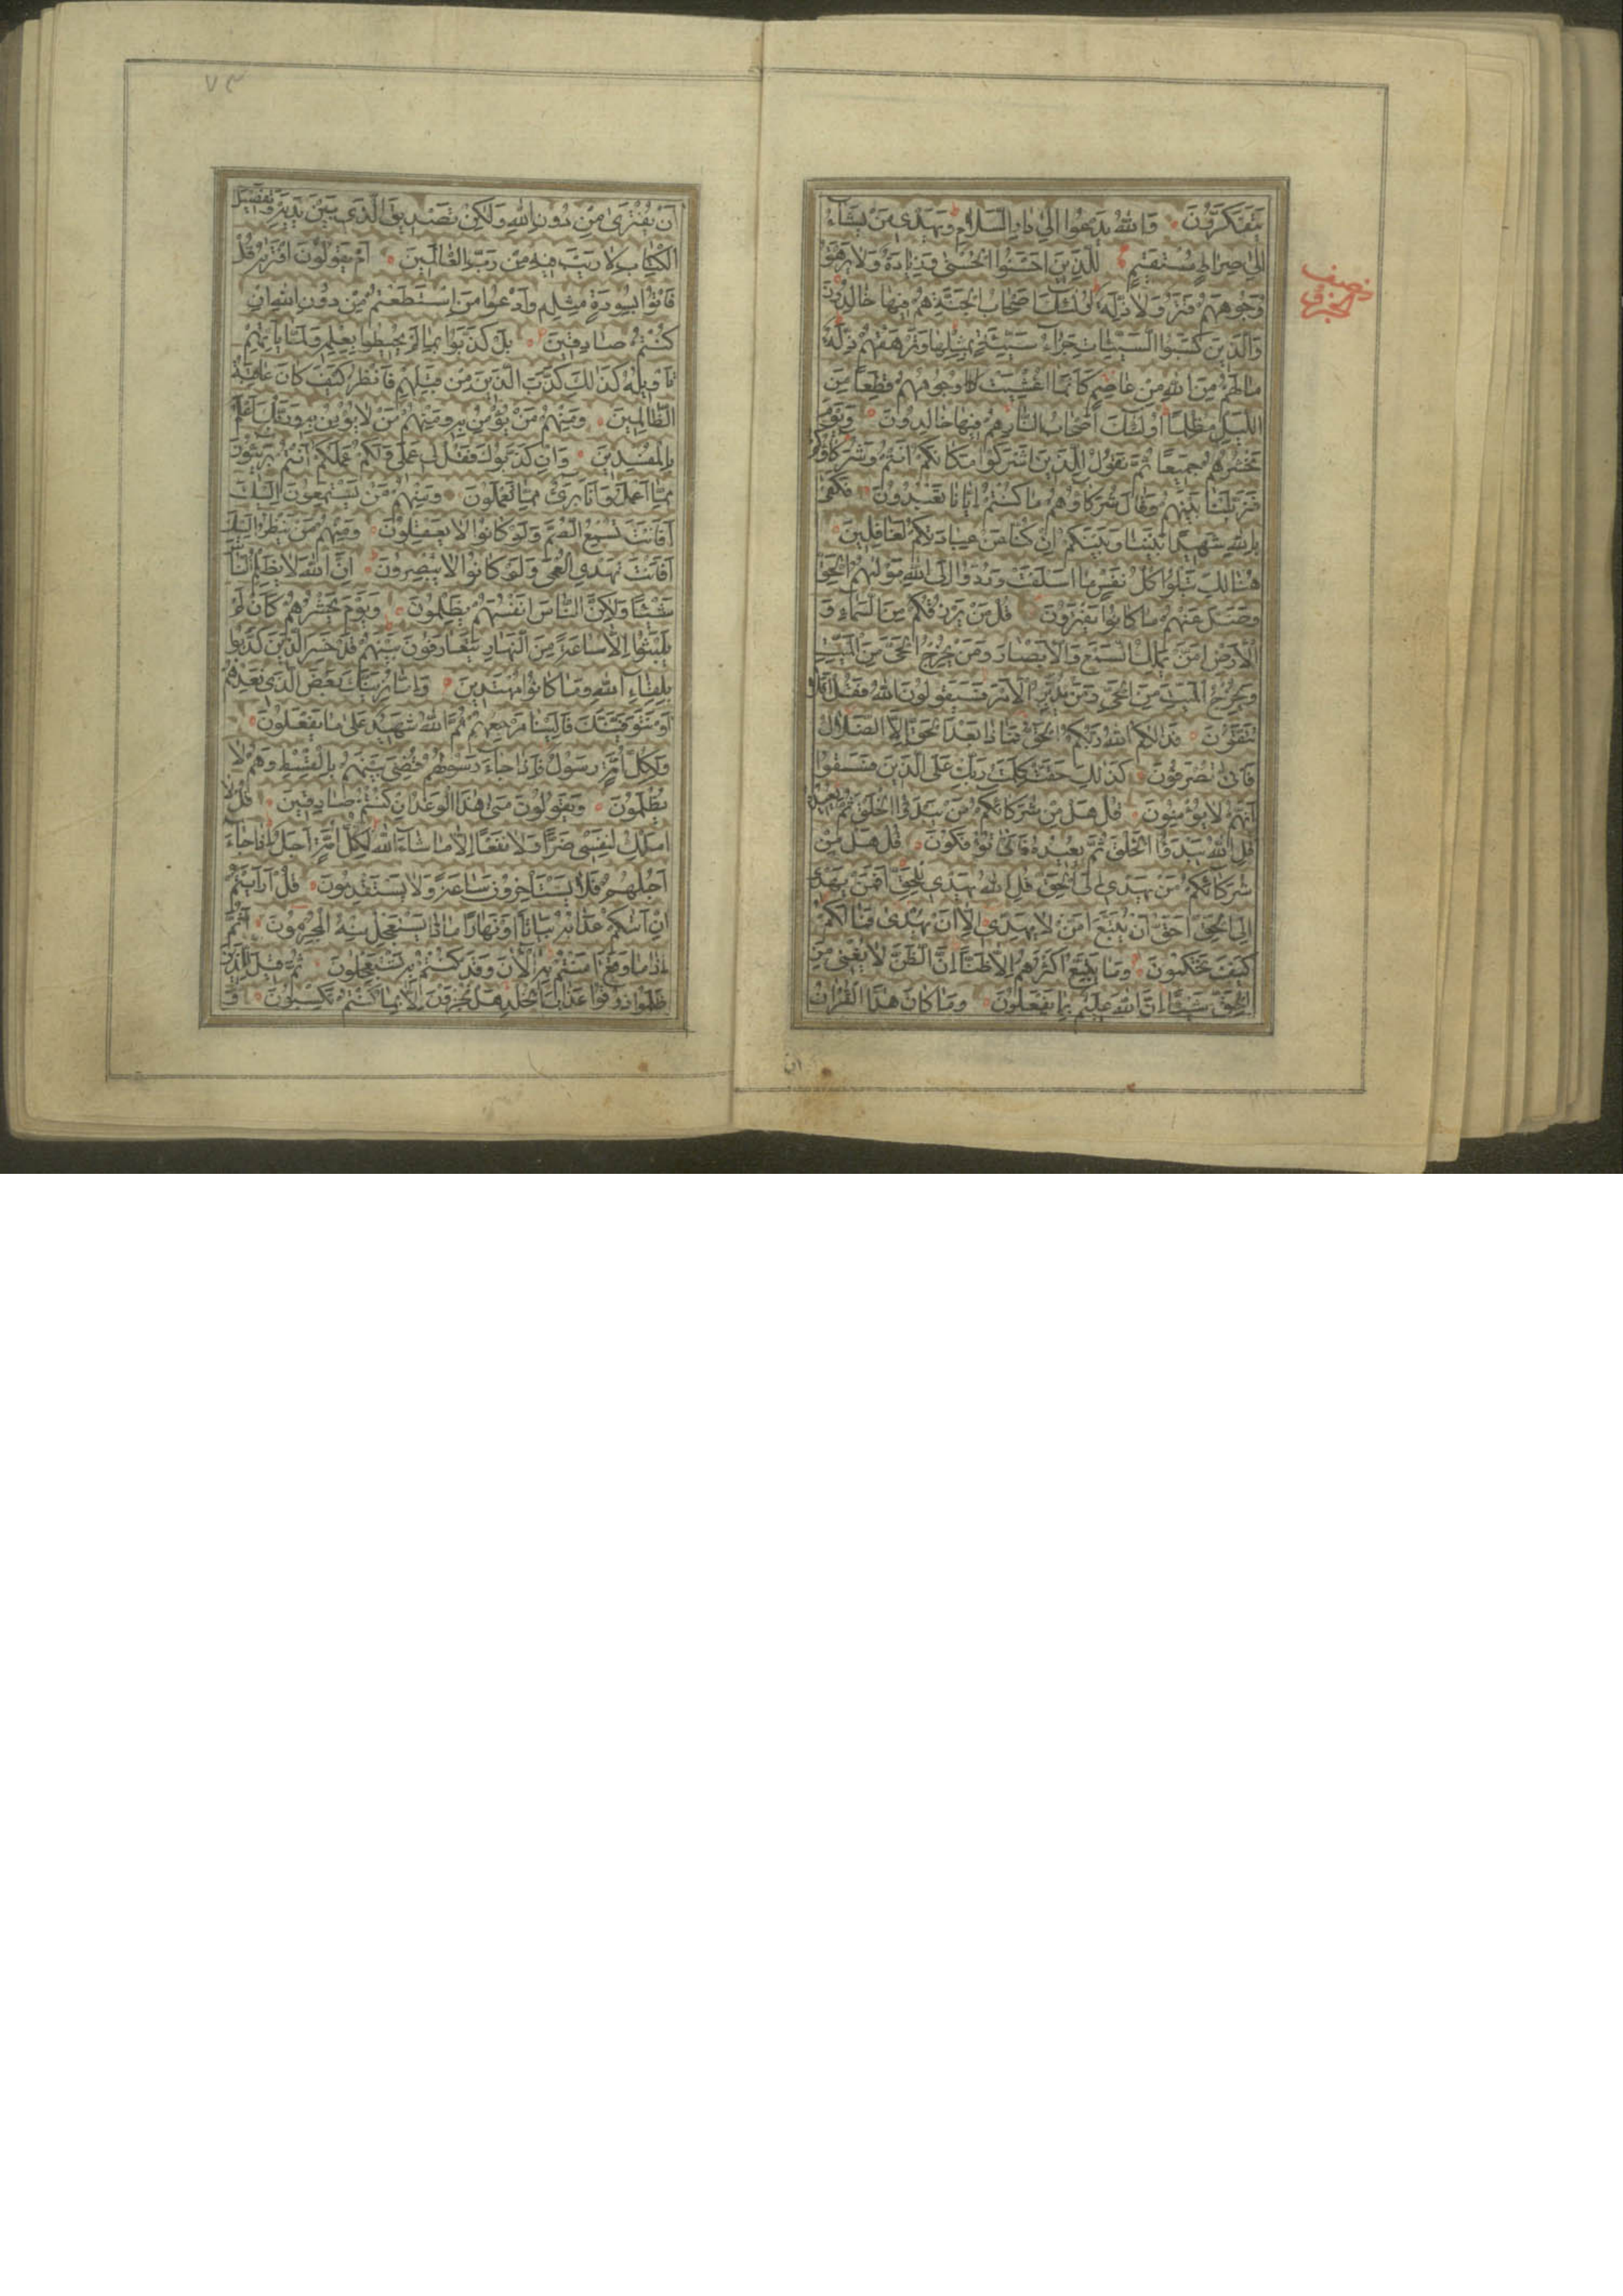 يَتَفَكَّرُونَ وَاللّٰهُ يَدْعُوا اِلٰى دَارِ السَّلَامِ وَيَهْدِى مَنْ يَشَاءُ
اِلٰى صِرَاطٍ مُسْتَقِيمٍ لِلَّذِينَ اَحْسَنُوا الْحُسْنٰى وَزِيَادَةٌ وَلَا يَرْهَقُ
نصف الحزب
وُجُوهَهُمْ قَتَرٌ وَلَا ذِلَّةٌ اُولٰئِكَ اَصْحَابُ الْجَنَّةِ هُمْ فِيهَا خَالِدُونَ
وَالَّذِينَ كَسَبُوا السَّيِّئَاتِ جَزَاءُ سَيِّئَةٍ بِمِثْلِهَا وَتَرْهَقُهُمْ ذِلَّةٌ
مَا لَهُمْ مِنَ اللّٰهِ مِنْ عَاصِمٍ كَاَنَّمَا اُغْشِيَتْ وُجُوهُهُمْ قِطَعًا مِنَ
اللَّيْلِ مُظْلِمًا اُولٰئِكَ اَصْحَابُ النَّارِ هُمْ فِيهَا خَالِدُونَ وَيَوْمَ
نَحْشُرُهُمْ جَمِيعًا ثُمَّ نَقُولُ لِلَّذِينَ اَشْرَكُوا مَكَانَكُمْ اَنْتُمْ وَشُرَكَاؤُكُمْ
فَزَيَّلْنَا بَيْنَهُمْ وَقَالَ شُرَكَاؤُهُمْ مَا كُنْتُمْ اِيَّانَا تَعْبُدُونَ فَكَفٰى
بِاللّٰهِ شَهِيدًا بَيْنَنَا وَبَيْنَكُمْ اِنْ كُنَّا عَنْ عِبَادَتِكُمْ لَغَافِلِينَ
هُنَالِكَ تَبْلُوا كُلُّ نَفْسٍ مَا اَسْلَفَتْ وَرُدُّوا اِلَى اللّٰهِ مَوْلٰيهُمُ الْحَقِّ
وَضَلَّ عَنْهُمْ مَا كَانُوا يَفْتَرُونَ قُلْ مَنْ يَرْزُقُكُمْ مِنَ السَّمَاءِ وَ
الْاَرْضِ اَمَّنْ يَمْلِكُ السَّمْعَ وَالْاَبْصَارَ وَمَنْ يُخْرِجُ الْحَىَّ مِنَ الْمَيِّتِ
وَيُخْرِجُ الْمَيِّتَ مِنَ الْحَىِّ وَمَنْ يُدَبِّرُ الْاَمْرَ فَسَيَقُولُونَ اللّٰهُ فَقُلْ اَفَلَا
تَتَّقُونَ فَذٰلِكُمُ اللّٰهُ رَبُّكُمُ الْحَقُّ فَمَاذَا بَعْدَ الْحَقِّ اِلَّا الضَّلَالُ
فَاَنّٰى تُصْرَفُونَ كَذٰلِكَ حَقَّتْ كَلِمَتُ رَبِّكَ عَلَى الَّذِينَ فَسَقُوا
اَنَّهُمْ لَا يُؤْمِنُونَ قُلْ هَلْ مِنْ شُرَكَائِكُمْ مَنْ يَبْدَؤُا الْخَلْقَ ثُمَّ يُعِيدُهُ
قُلِ اللّٰهُ يَبْدَؤُا الْخَلْقَ ثُمَّ يُعِيدُهُ فَاَنّٰى تُؤْفَكُونَ قُلْ هَلْ مِنْ
شُرَكَائِكُمْ مَنْ يَهْدِى اِلَى الْحَقِّ قُلِ اللّٰهُ يَهْدِى لِلْحَقِّ اَفَمَنْ يَهْدِى
اِلَى الْحَقِّ اَحَقُّ اَنْ يُتَّبَعَ اَمَّنْ لَا يَهِدِّى اِلَّا اَنْ يُهْدٰى فَمَا لَكُمْ
كَيْفَ تَحْكُمُونَ وَمَا يَتَّبِعُ اَكْثَرُهُمْ اِلَّا ظَنًّا اِنَّ الظَّنَّ لَا يُغْنِى مِنَ
الْحَقِّ شَيْئًا اِنَّ اللّٰهَ عَلِيمٌ بِمَا يَفْعَلُونَ وَمَا كَانَ هٰذَا الْقُرْاٰنُ
ان
اَنْ يُفْتَرٰى مِنْ دُونِ اللّٰهِ وَلٰكِنْ تَصْدِيقَ الَّذِى بَيْنَ يَدَيْهِ وَتَفْصِيلَ
الْكِتَابِ لَا رَيْبَ فِيهِ مِنْ رَبِّ الْعَالَمِينَ اَمْ يَقُولُونَ افْتَرٰيهُ قُلْ
فَأْتُوا بِسُورَةٍ مِثْلِهِ وَادْعُوا مَنِ اسْتَطَعْتُمْ مِنْ دُونِ اللّٰهِ اِنْ
كُنْتُمْ صَادِقِينَ بَلْ كَذَّبُوا بِمَا لَمْ يُحِيطُوا بِعِلْمِهِ وَلَمَّا يَأْتِهِمْ
تَأْوِيلُهُ كَذٰلِكَ كَذَّبَ الَّذِينَ مِنْ قَبْلِهِمْ فَانْظُرْ كَيْفَ كَانَ عَاقِبَةُ
الظَّالِمِينَ وَمِنْهُمْ مَنْ يُؤْمِنُ بِهِ وَمِنْهُمْ مَنْ لَا يُؤْمِنُ بِهِ وَرَبُّكَ اَعْلَمُ
بِالْمُفْسِدِينَ وَاِنْ كَذَّبُوكَ فَقُلْ لِى عَمَلِى وَلَكُمْ عَمَلُكُمْ اَنْتُمْ بَرِيئُونَ
مِمَّا اَعْمَلُ وَاَنَا بَرِىءٌ مِمَّا تَعْمَلُونَ وَمِنْهُمْ مَنْ يَسْتَمِعُونَ اِلَيْكَ
اَفَاَنْتَ تُسْمِعُ الصُّمَّ وَلَوْ كَانُوا لَا يَعْقِلُونَ وَمِنْهُمْ مَنْ يَنْظُرُ اِلَيْكَ
اَفَاَنْتَ تَهْدِى الْعُمْىَ وَلَوْ كَانُوا لَا يُبْصِرُونَ اِنَّ اللّٰهَ لَا يَظْلِمُ النَّاسَ
شَيْئًا وَلٰكِنَّ النَّاسَ اَنْفُسَهُمْ يَظْلِمُونَ وَيَوْمَ يَحْشُرُهُمْ كَاَنْ لَمْ
يَلْبَثُوا اِلَّا سَاعَةً مِنَ النَّهَارِ يَتَعَارَفُونَ بَيْنَهُمْ قَدْ خَسِرَ الَّذِينَ كَذَّبُوا
بِلِقَاءِ اللّٰهِ وَمَا كَانُوا مُهْتَدِينَ وَاِمَّا نُرِيَنَّكَ بَعْضَ الَّذِى نَعِدُهُمْ
اَوْ نَتَوَفَّيَنَّكَ فَاِلَيْنَا مَرْجِعُهُمْ ثُمَّ اللّٰهُ شَهِيدٌ عَلٰى مَا يَفْعَلُونَ
وَلِكُلِّ اُمَّةٍ رَسُولٌ فَاِذَا جَاءَ رَسُولُهُمْ قُضِىَ بَيْنَهُمْ بِالْقِسْطِ وَهُمْ لَا
يُظْلَمُونَ وَيَقُولُونَ مَتٰى هٰذَا الْوَعْدُ اِنْ كُنْتُمْ صَادِقِينَ قُلْ لَا
اَمْلِكُ لِنَفْسِى ضَرًّا وَلَا نَفْعًا اِلَّا مَا شَاءَ اللّٰهُ لِكُلِّ اُمَّةٍ اَجَلٌ اِذَا جَاءَ
اَجَلُهُمْ فَلَا يَسْتَأْخِرُونَ سَاعَةً وَلَا يَسْتَقْدِمُونَ قُلْ اَرَاَيْتُمْ
اِنْ اَتٰيكُمْ عَذَابُهُ بَيَاتًا اَوْ نَهَارًا مَاذَا يَسْتَعْجِلُ مِنْهُ الْمُجْرِمُونَ اَثُمَّ
اِذَا مَا وَقَعَ اٰمَنْتُمْ بِهِ آلْاٰنَ وَقَدْ كُنْتُمْ بِهِ تَسْتَعْجِلُونَ ثُمَّ قِيلَ لِلَّذِينَ
ظَلَمُوا ذُوقُوا عَذَابَ الْخُلْدِ هَلْ تُجْزَوْنَ اِلَّا بِمَا كُنْتُمْ تَكْسِبُونَ وَ